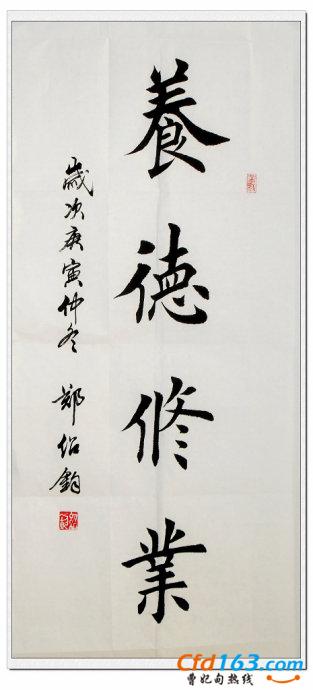 養德修業
歲次庚寅仲冬 鄭紹鈞
Cfd163.com
曹妃甸热线